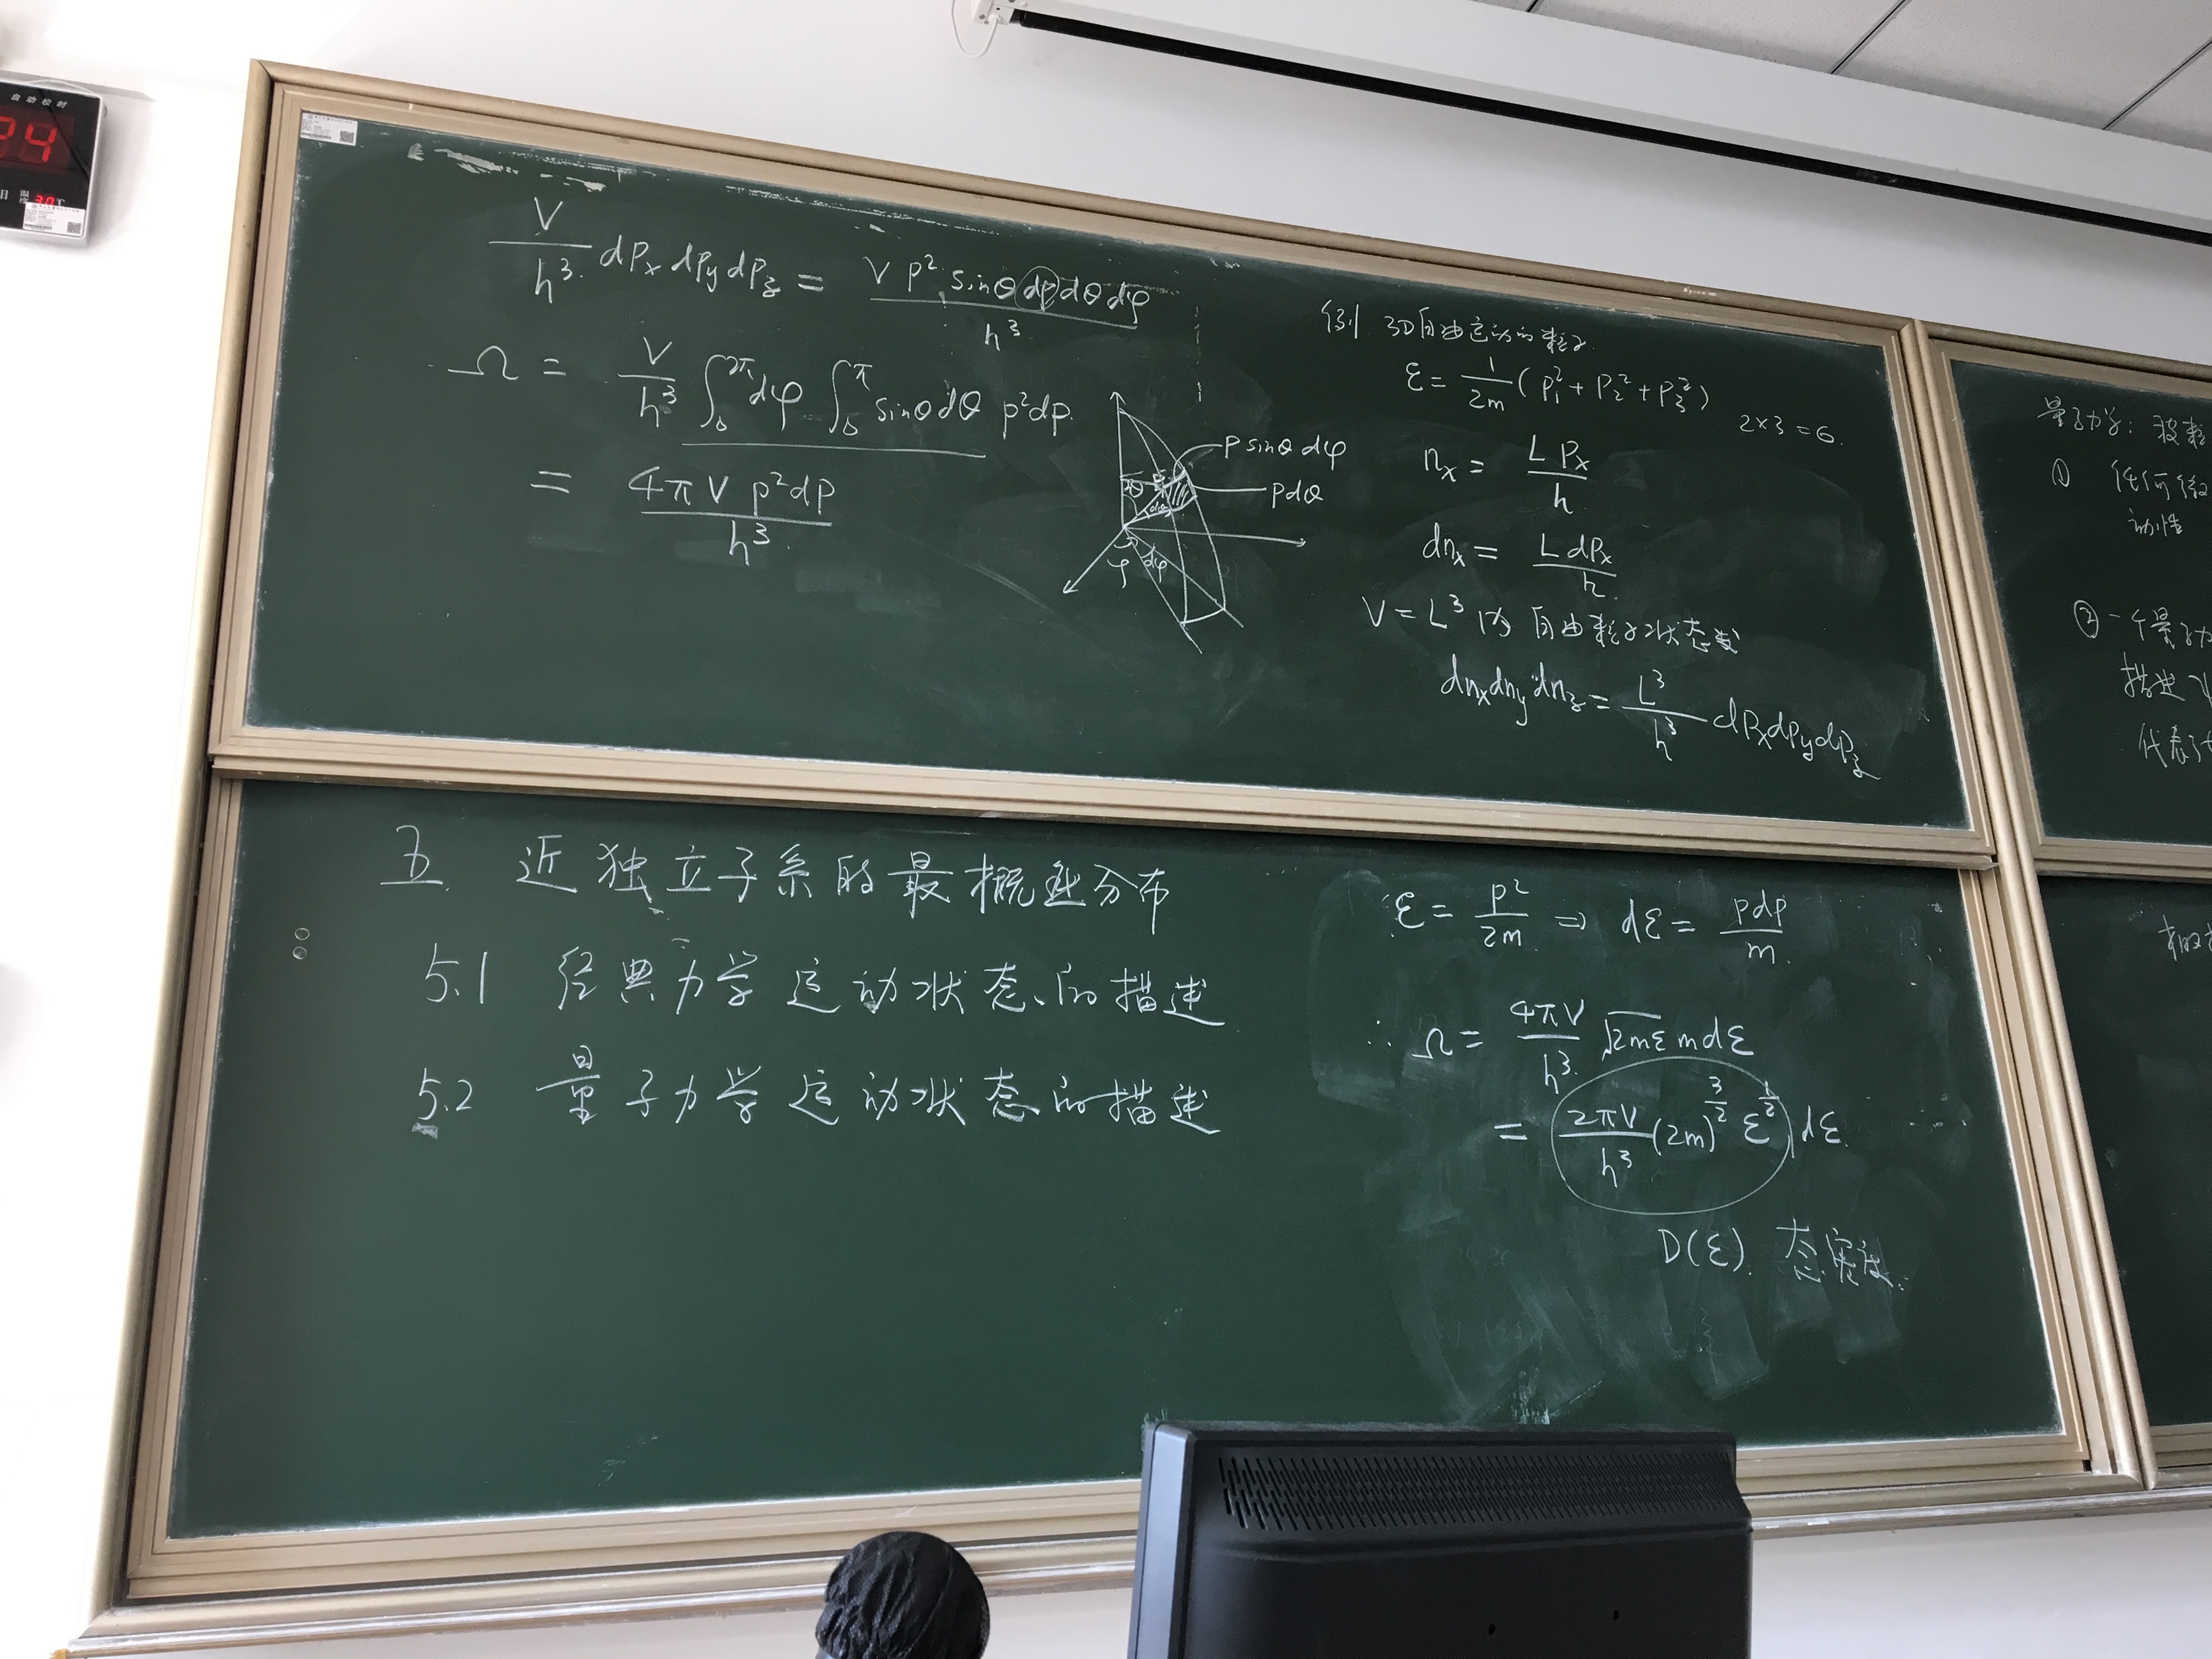 自动校时
24
日 温度 30℃
V/h³ dPx dPy dPz = V p² sinθ dp dθ dφ / h³
Ω = V/h³ ∫₀^2π dφ ∫₀^π sinθ dθ p²dp.
= 4π V p²dp / h³
p sinθ dφ
pdθ
θ
dθ
φ dφ
例 3D自由运动的粒子.
ε = 1/2m (p₁² + p₂² + p₃²)
2×3=6.
nx = L Px / h
dnx = L dPx / h
V = L³ 内 自由粒子状态数
dnx dny dnz = L³/h³ dPx dPy dPz
量子力学: 波粒
① 任何微
动性
② 一个量子力
描述
代表了
五 近独立子系的最概然分布
5.1 经典力学运动状态的描述
5.2 量子力学运动状态的描述
ε = p²/2m ⇒ dε = pdp/m.
∴ Ω = 4πV/h³ √2mε mdε
= 2πV/h³ (2m)^3/2 ε^1/2 dε
D(ε). 态密度.